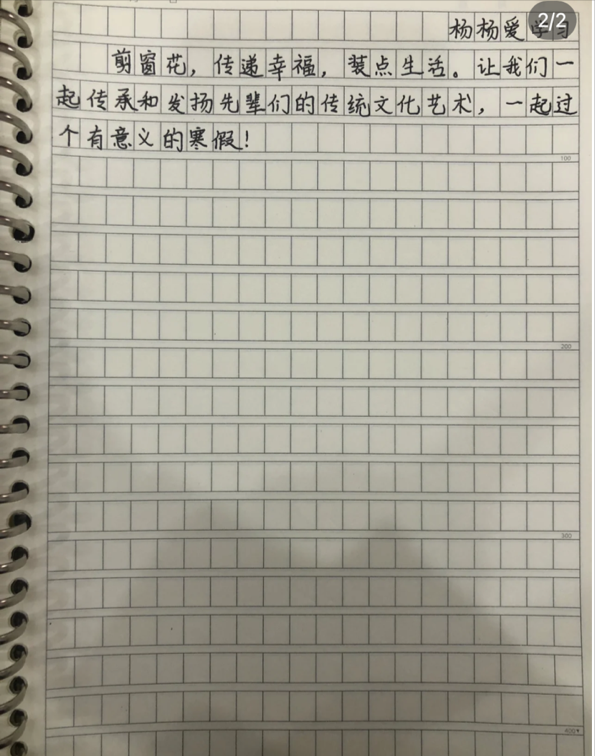 杨杨爱学习
2/2
剪窗花，传递幸福，装点生活。让我们一
起传承和发扬先辈们的传统文化艺术，一起过
个有意义的寒假！
100
200
300
400